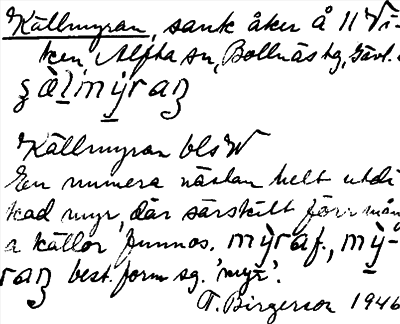 Källmyran, sank åker å 11 Vi-
ken, Alfta sn, Bollnäs tg, Gävl.
Källmyran bls W
En numera nästan helt utdi
kad myr, där särskilt förr mån
a källor funnos. mỳraf., mỳ-
raꞃ best. form sg. 'myr'.
T. Birgerson 1946